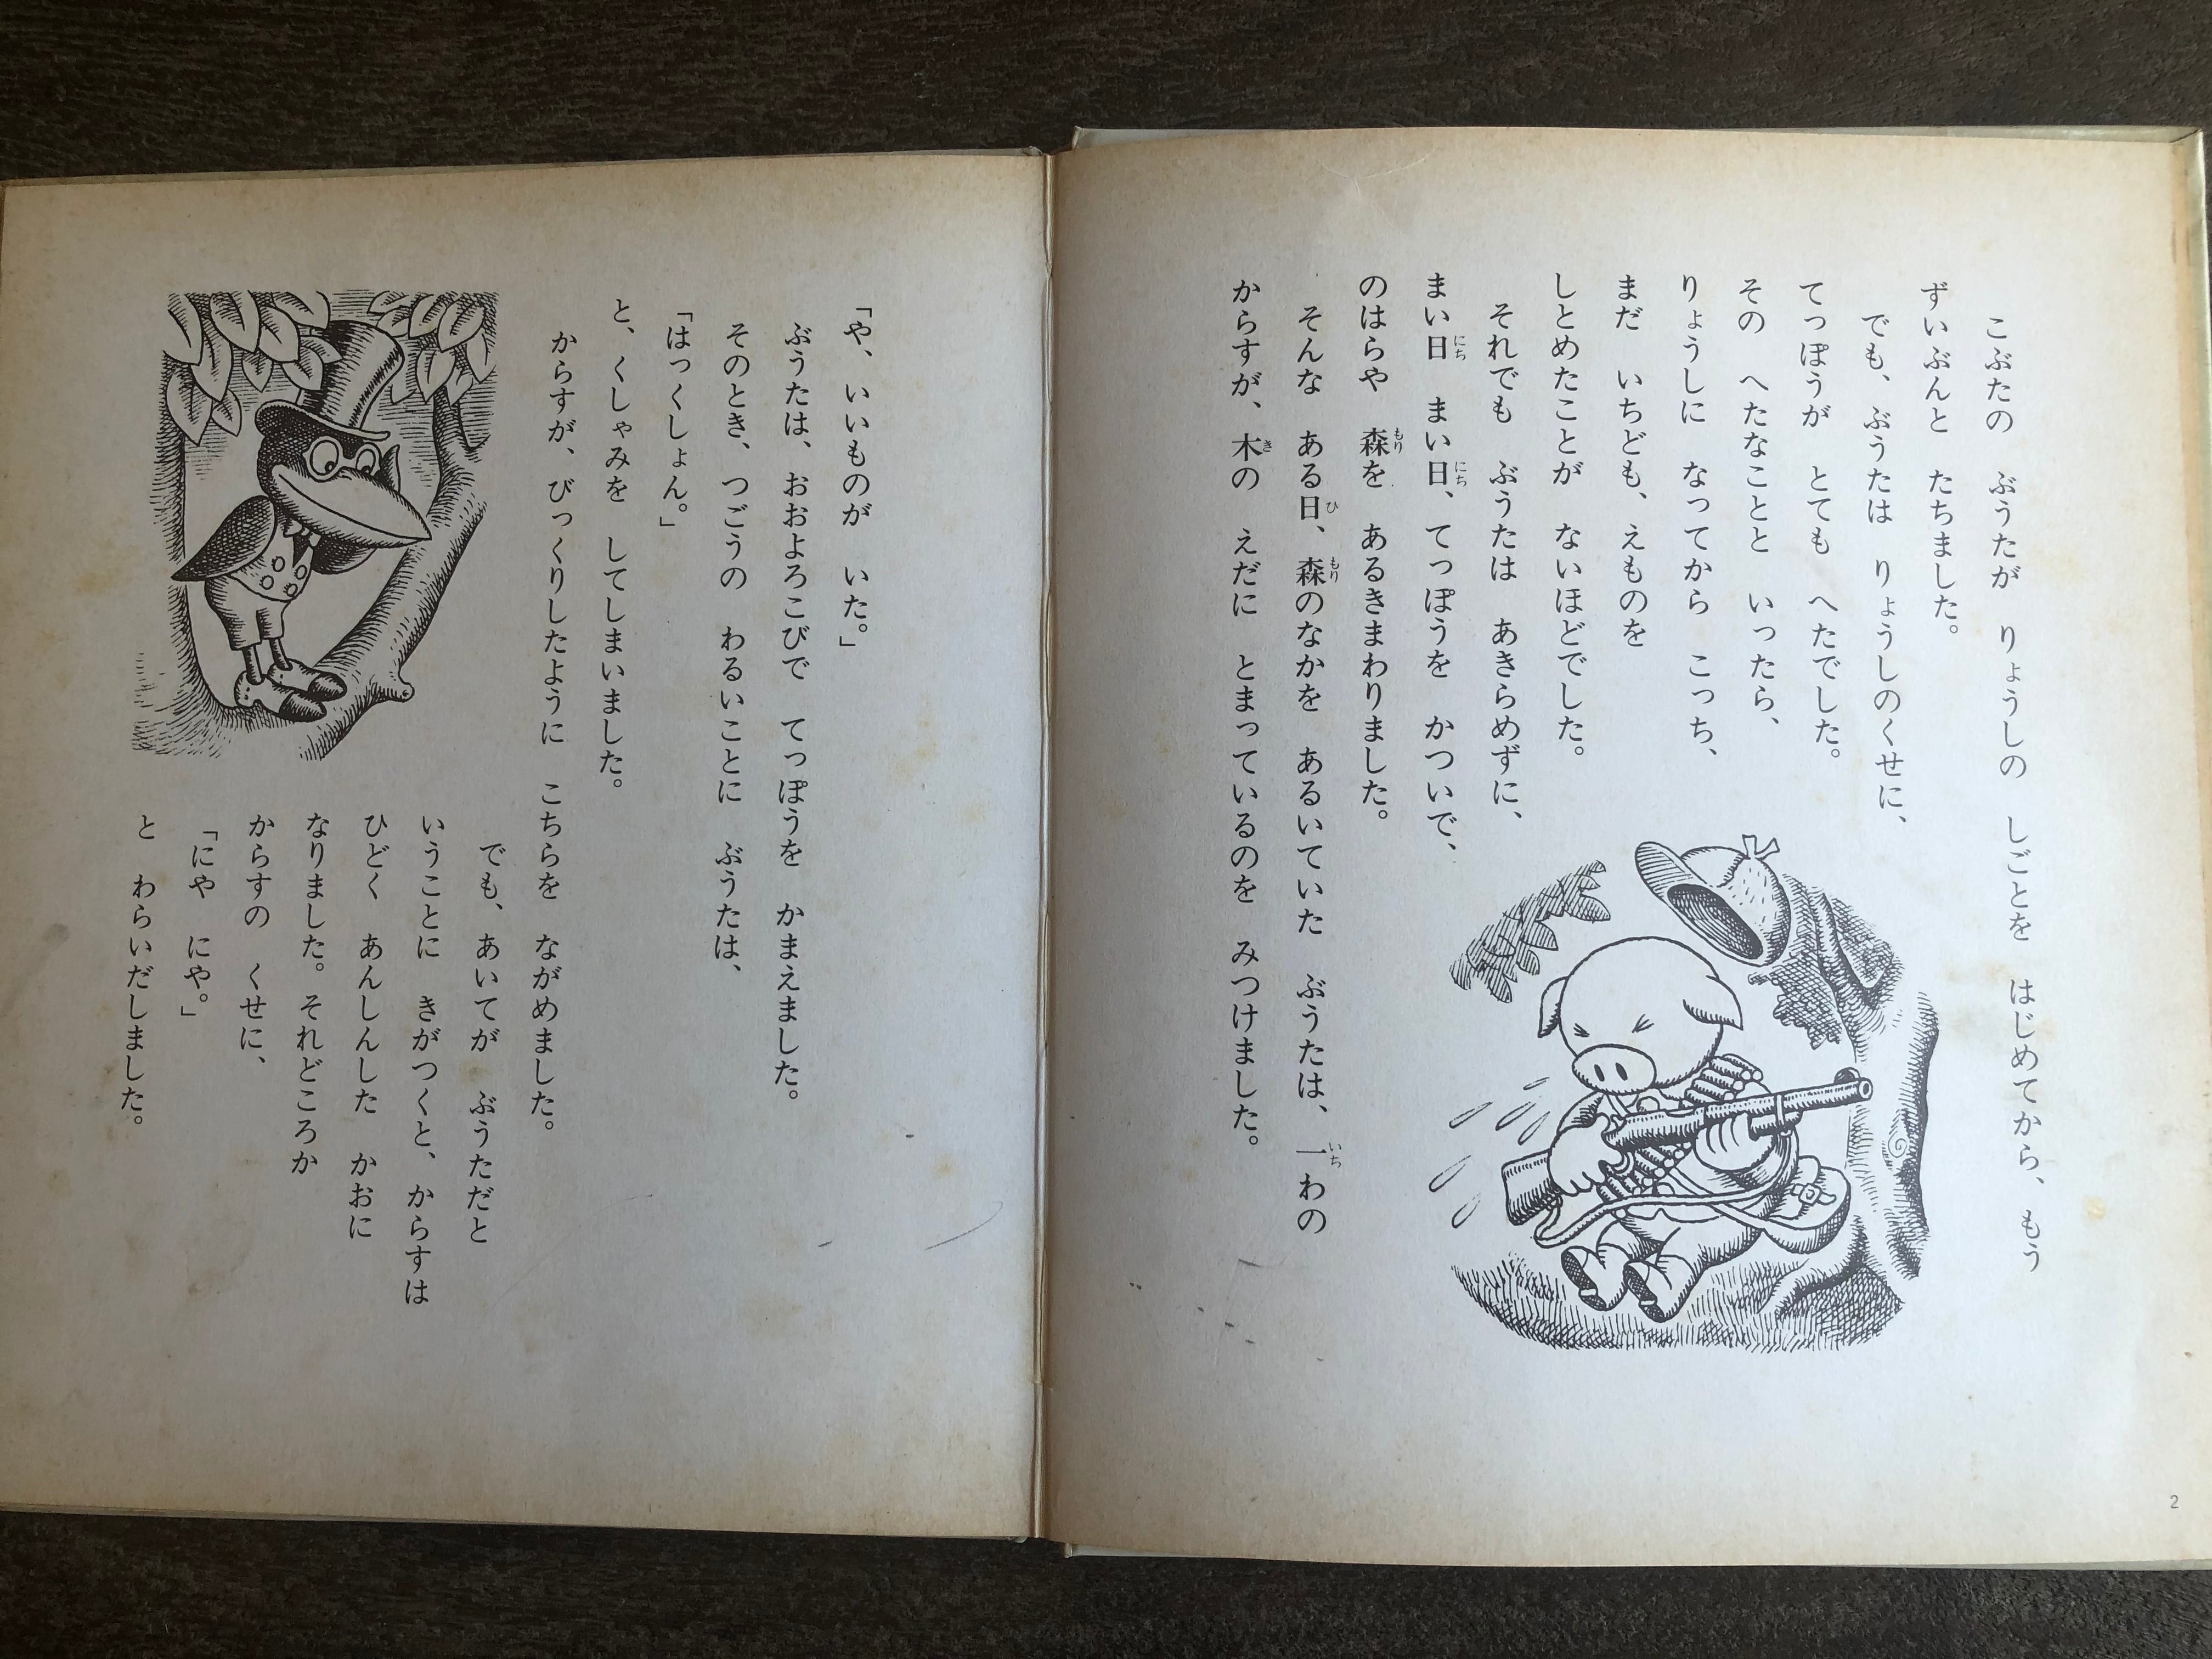 こぶたの ぶうたが りょうしの しごとを はじめてから、 もう
ずいぶんと たちました。
でも、ぶうたは りょうしのくせに、
てっぽうが とても へたでした。
その へたなことと いったら、
りょうしに なってから こっち、
まだ いちども、えものを
しとめたことが ないほどでした。
それでも ぶうたは あきらめずに、
まい日 まい日、てっぽうを かついで、
のはらや 森を あるきまわりました。
そんな ある日、森のなかを あるいていた ぶうたは、 一わの
からすが、木の えだに とまっているのを みつけました。
「や、いいものが いた。」
ぶうたは、おおよろこびで てっぽうを かまえました。
そのとき、つごうの わるいことに ぶうたは、
「はっくしょん。」
と、くしゃみを してしまいました。
からすが、びっくりしたように こちらを ながめました。
でも、あいてが ぶうただと
いうことに きがつくと、からすは
ひどく あんしんした かおに
なりました。それどころか
からすの くせに、
「にや にや。」
と わらいだしました。
2